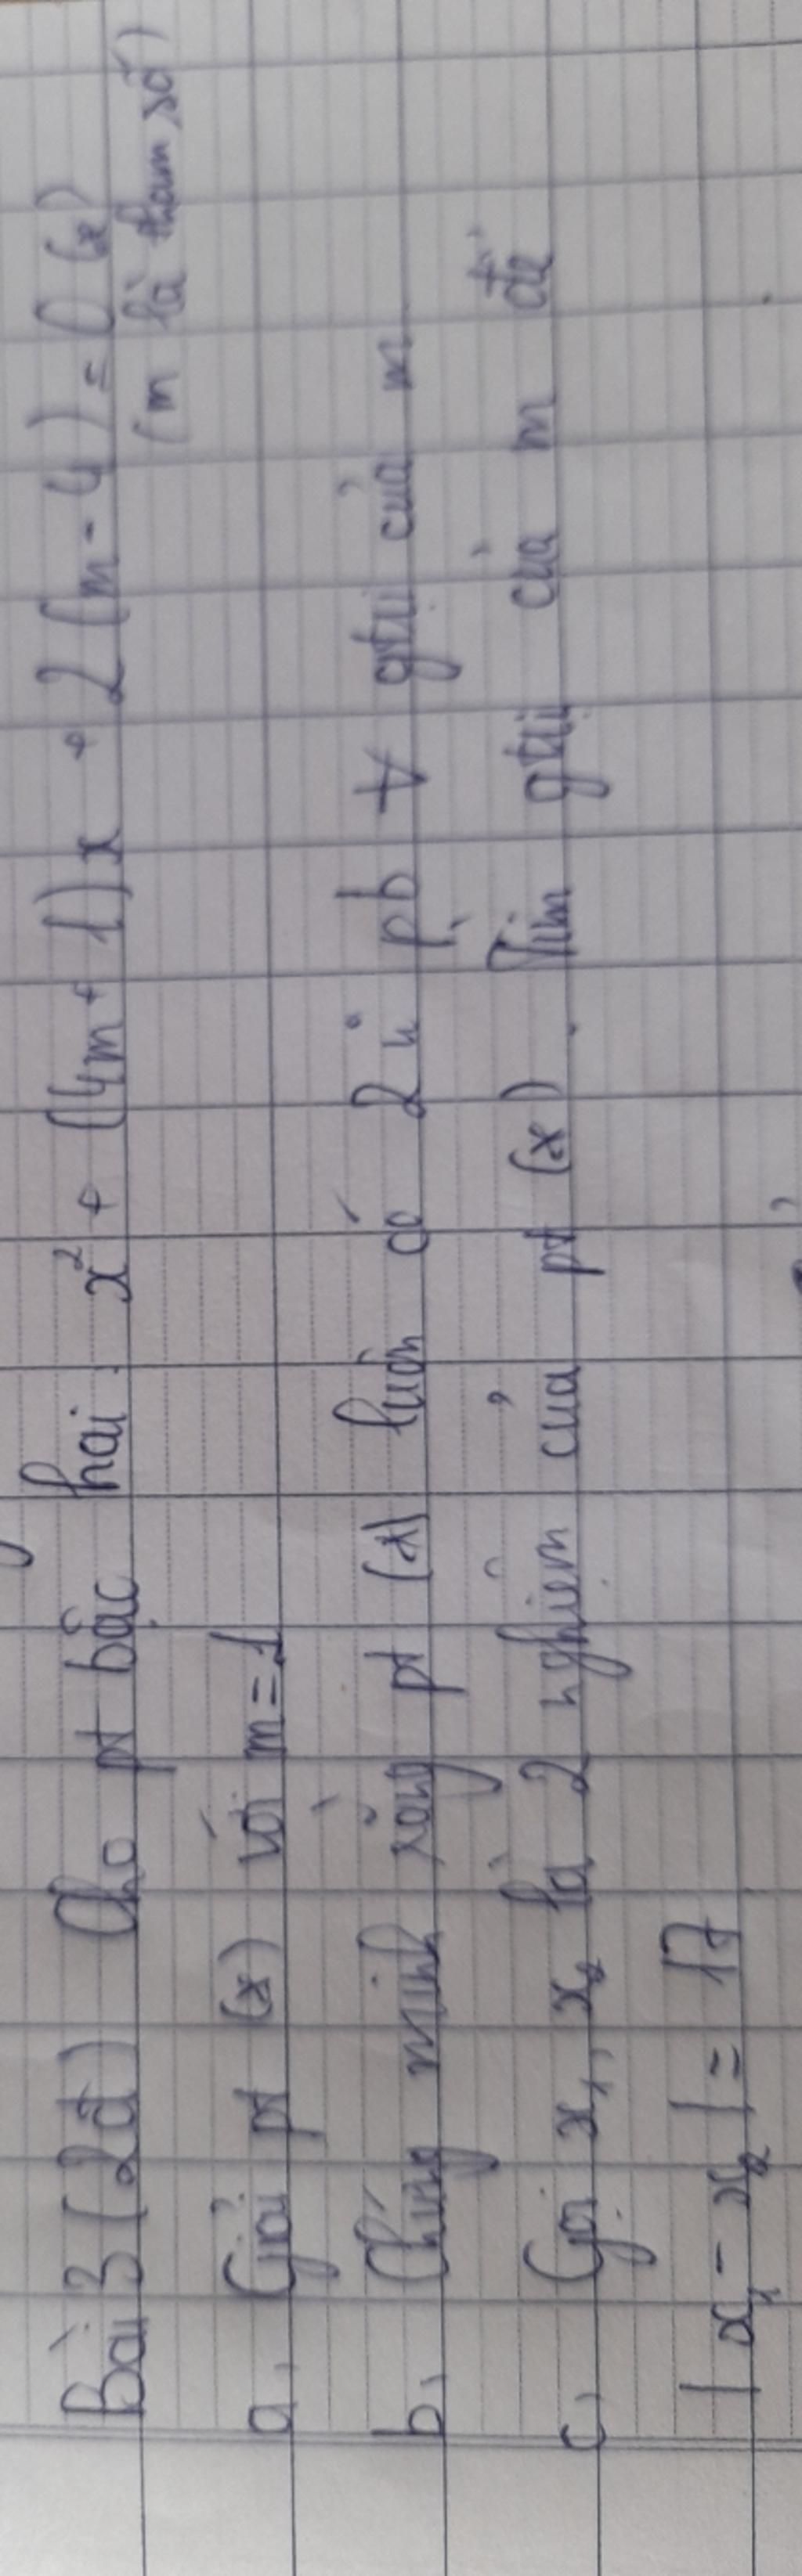 Bài 3 (2đ) Cho pt bậc hai: x² + (4m + 1)x + 2(m - 4) = 0 (*)
(m là tham số)
a, Giải pt (*) với m = 1
b, Chứng minh rằng pt (*) luôn có 2 n° pb ∀ gtrị của m
c, Gọi x₁, x₂ là 2 nghiệm của pt (*). Tìm gtrị của m để
|x₁ - x₂| = 17